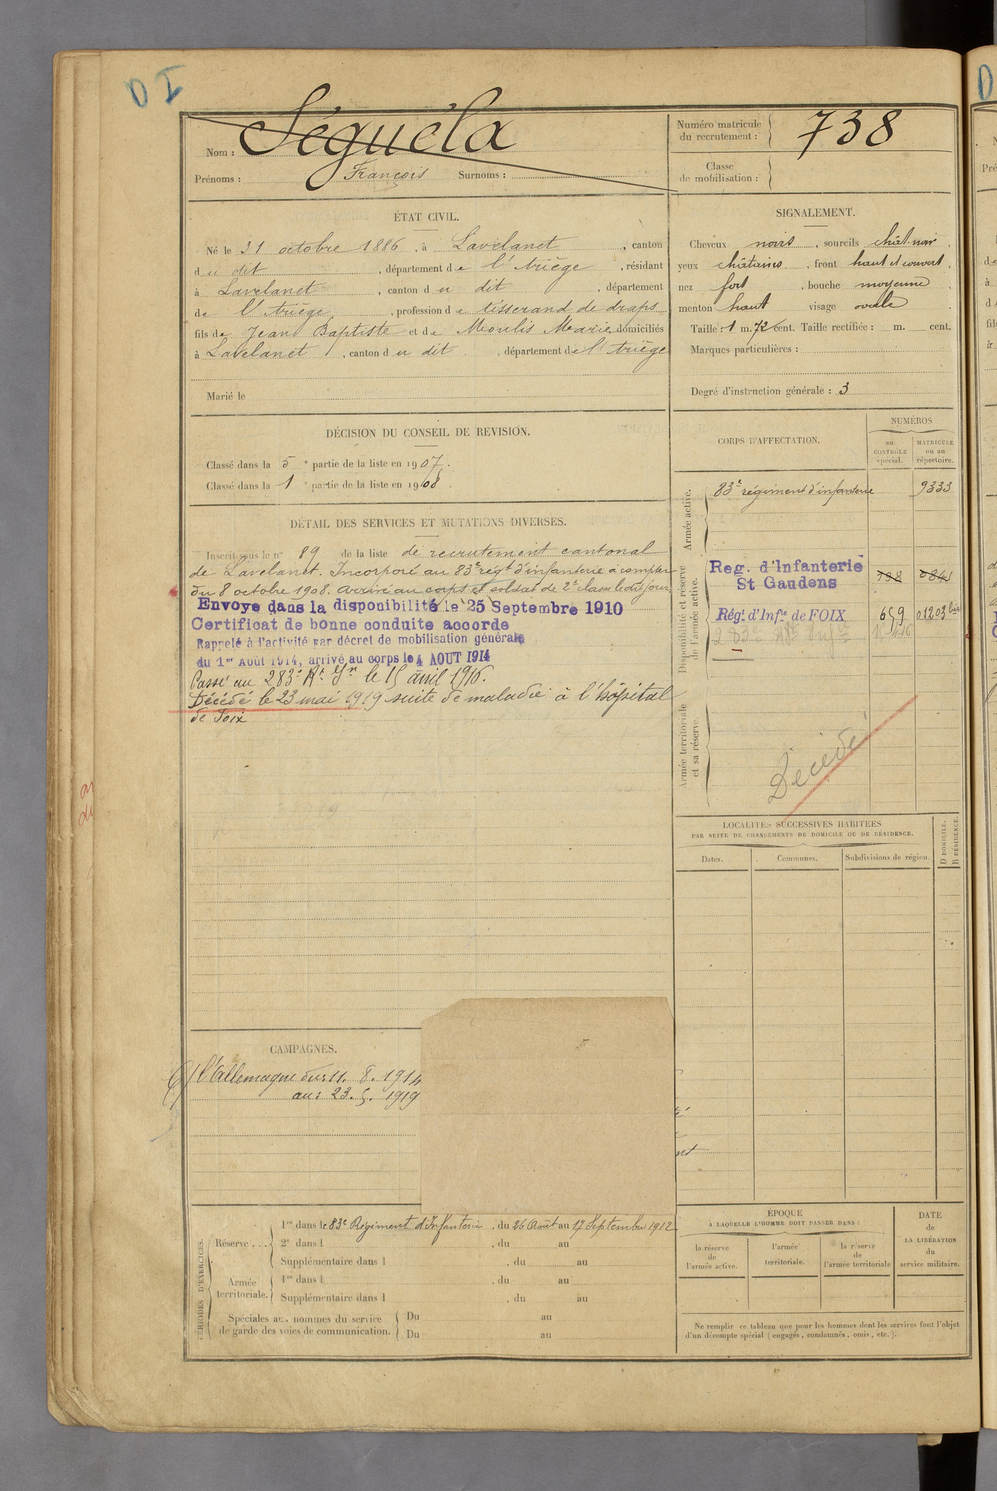 D I
Nom : Séguéla
Prénoms : François Surnoms :
Numéro matricule du recrutement : 738
Classe de mobilisation :
ÉTAT CIVIL.
Né le 31 octobre 1886, à Lavelanet, canton
du dit, département de l'Ariège, résidant
à Lavelanet, canton du dit, département
de l'Ariège, profession de tisserand de draps
fils de Jean Baptiste et de Moulis Marie domiciliés
à Lavelanet, canton du dit, département de l'Ariège
Marié le
SIGNALEMENT.
Cheveux noirs, sourcils chât-noir.
yeux châtains, front haut et couvert.
nez fort, bouche moyenne
menton haut visage ovale
Taille : 1 m. 72 cent. Taille rectifiée : m. cent.
Marques particulières :
Degré d'instruction générale : 3
DÉCISION DU CONSEIL DE REVISION.
Classé dans la 5e partie de la liste en 1907.
Classé dans la 1e partie de la liste en 1908.
DÉTAIL DES SERVICES ET MUTATIONS DIVERSES.
Inscrit sous le n° 89 de la liste de recrutement cantonal
de Lavelanet. Incorporé au 83e régt d'infanterie à compter
du 8 octobre 1908. Arrivé au corps et soldat de 2e classe le dit jour
Envoyé dans la disponibilité le 25 Septembre 1910
Certificat de bonne conduite accordé
Rappelé à l'activité par décret de mobilisation générale
du 1er Août 1914, arrivé au corps le 4 AOUT 1914
Passé au 283e Rt Ir le 15 avril 1916.
Décédé le 23 mai 1919 suite de maladie à l'hôpital
de Foix
CORPS D'AFFECTATION.
NUMÉROS
au CONTRÔLE spécial.
MATRICULE ou au répertoire.
Armée active.
83e régiment d'infanterie 9333
Disponibilité et réserve de l'armée active.
Reg. d'Infanterie
St Gaudens
Régt d'Infie de FOIX 659 01203
Armée territoriale et sa réserve.
Décédé
LOCALITÉS SUCCESSIVES HABITÉES
PAR SUITE DE CHANGEMENTS DE DOMICILE OU DE RÉSIDENCE.
Dates. Communes. Subdivisions de région. D DOMICILE. R RÉSIDENCE.
CAMPAGNES.
C/ l'Allemagne du : 11. 8. 1914
au : 23. 5. 1919
PÉRIODES D'EXERCICES.
Réserve . . .
1re dans le 83e Régiment d'Infanterie, du 26 Août au 17 Septembre 1912
2e dans l , du au
Supplémentaire dans l , du au
Armée territoriale.
1re dans l , du au
Supplémentaire dans l , du au
Spéciales aux hommes du service de garde des voies de communication.
Du au
Du au
ÉPOQUE
À LAQUELLE L'HOMME DOIT PASSER DANS :
la réserve de l'armée active.
l'armée territoriale.
la réserve de l'armée territoriale
DATE de LA LIBÉRATION du service militaire.
Ne remplir ce tableau que pour les hommes dont les services font l'objet
d'un décompte spécial (engagés, condamnés, omis, etc.).